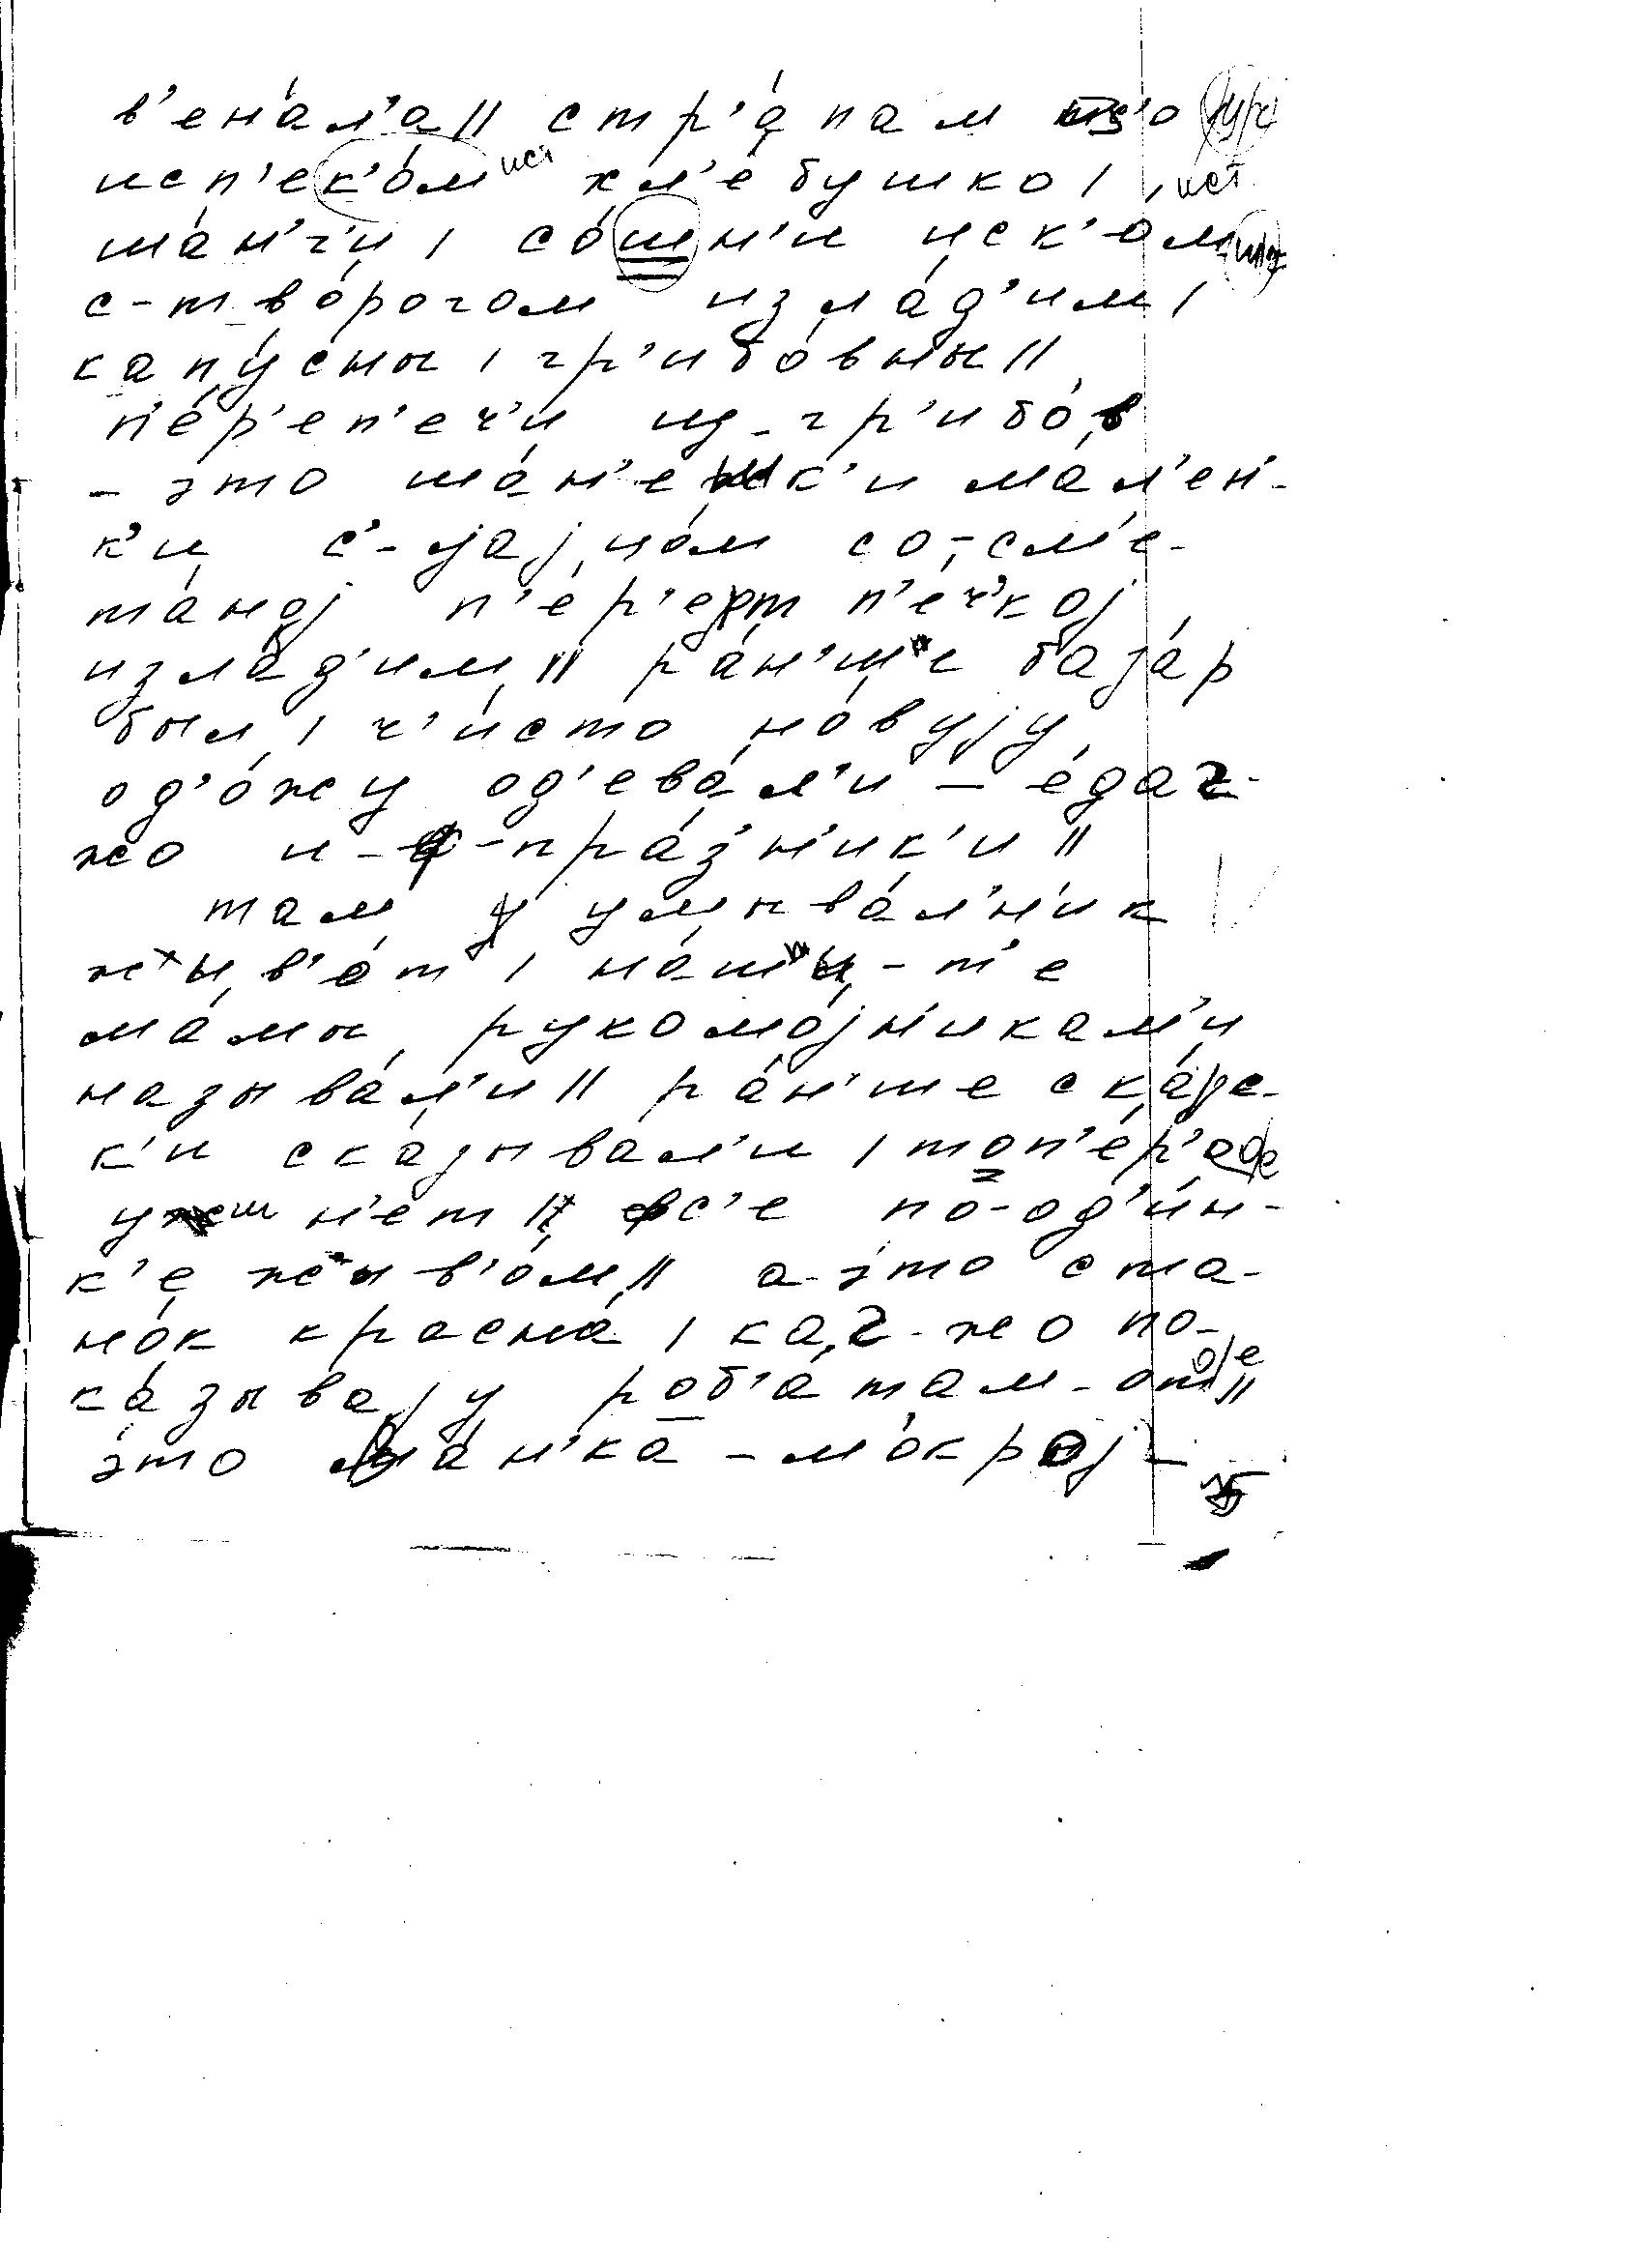 в'ена́л'а || стр'а́пам
исп'ек'о́м хл'е́бушко |
ша́н'г'и | со́шн'и иск'о́м
с-тво́рогом изла́д'им |
капу́сны | гр'ибо́вны ||
п'е́р'еп'еч'и из-гр'ибо́в
- э́то ша́н'ешк'и ма́л'ен'-
к'и с'-јајцо́м со-см'е-
та́ној п'е́р'ет п'е́ч'кој
изла́д'им || ра́н'ше база́р
был | ч'и́сто но́вују
од'о́жу од'ева́л'и – едаг-
жо и-ф-пра́з'н'ик'и ||
там у умыва́л'н'ик
жыв'о́т | на́шы-т'е
ма́мы рукомо́јн'икам'и
называ́л'и || ра́н'ше ска́зс-
к'и ска́зывал'и | топ'е́р'а
уш н'ет || вс'е по-од'и́н-
к'е жыв'о́м || а-э́то ста-
но́к красна́ | каг-жо по-
ка́зывају роб'а́там-от ||
э́то ва́н'ка – мо́крој –